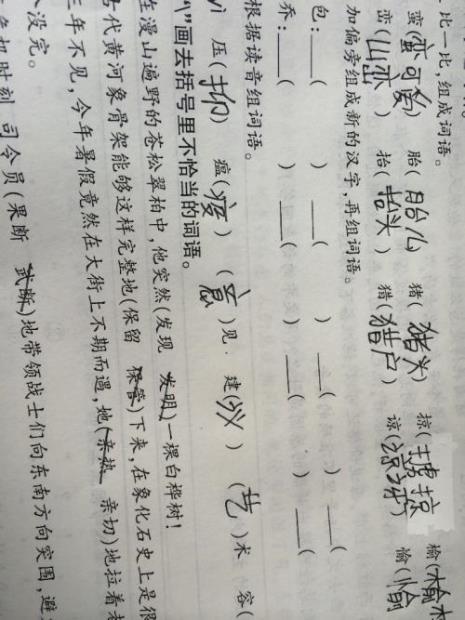 比一比,组成词语。
蛮(蛮可爱) 胎( 猪(猪头) 掠(掳掠 榆(榆
峦(山峦) 抬(抬头) 猎(猎户) 谅(谅 愉(愉
加偏旁组成新的汉字,再组词语。
包:___( ) ___( ) ___( ) ___(
乔:___( ) ___( ) ___( ) ___(
根据读音组词语。
yì 压(抑) 瘟(疫) (意)见 建(议) (艺)术 容(
"\"画去括号里不恰当的词语。
在漫山遍野的苍松翠柏中,他突然(发现 发明)一棵白桦树!
古代黄河象骨架能够这样完整地(保留 保管)下来,在象化石史上是很
三年不见,今年暑假竟然在大街上不期而遇,她(亲热 亲切)地拉着
没完。
时刻,司令员(果断 武断)地带领战士们向东南方向突围,避